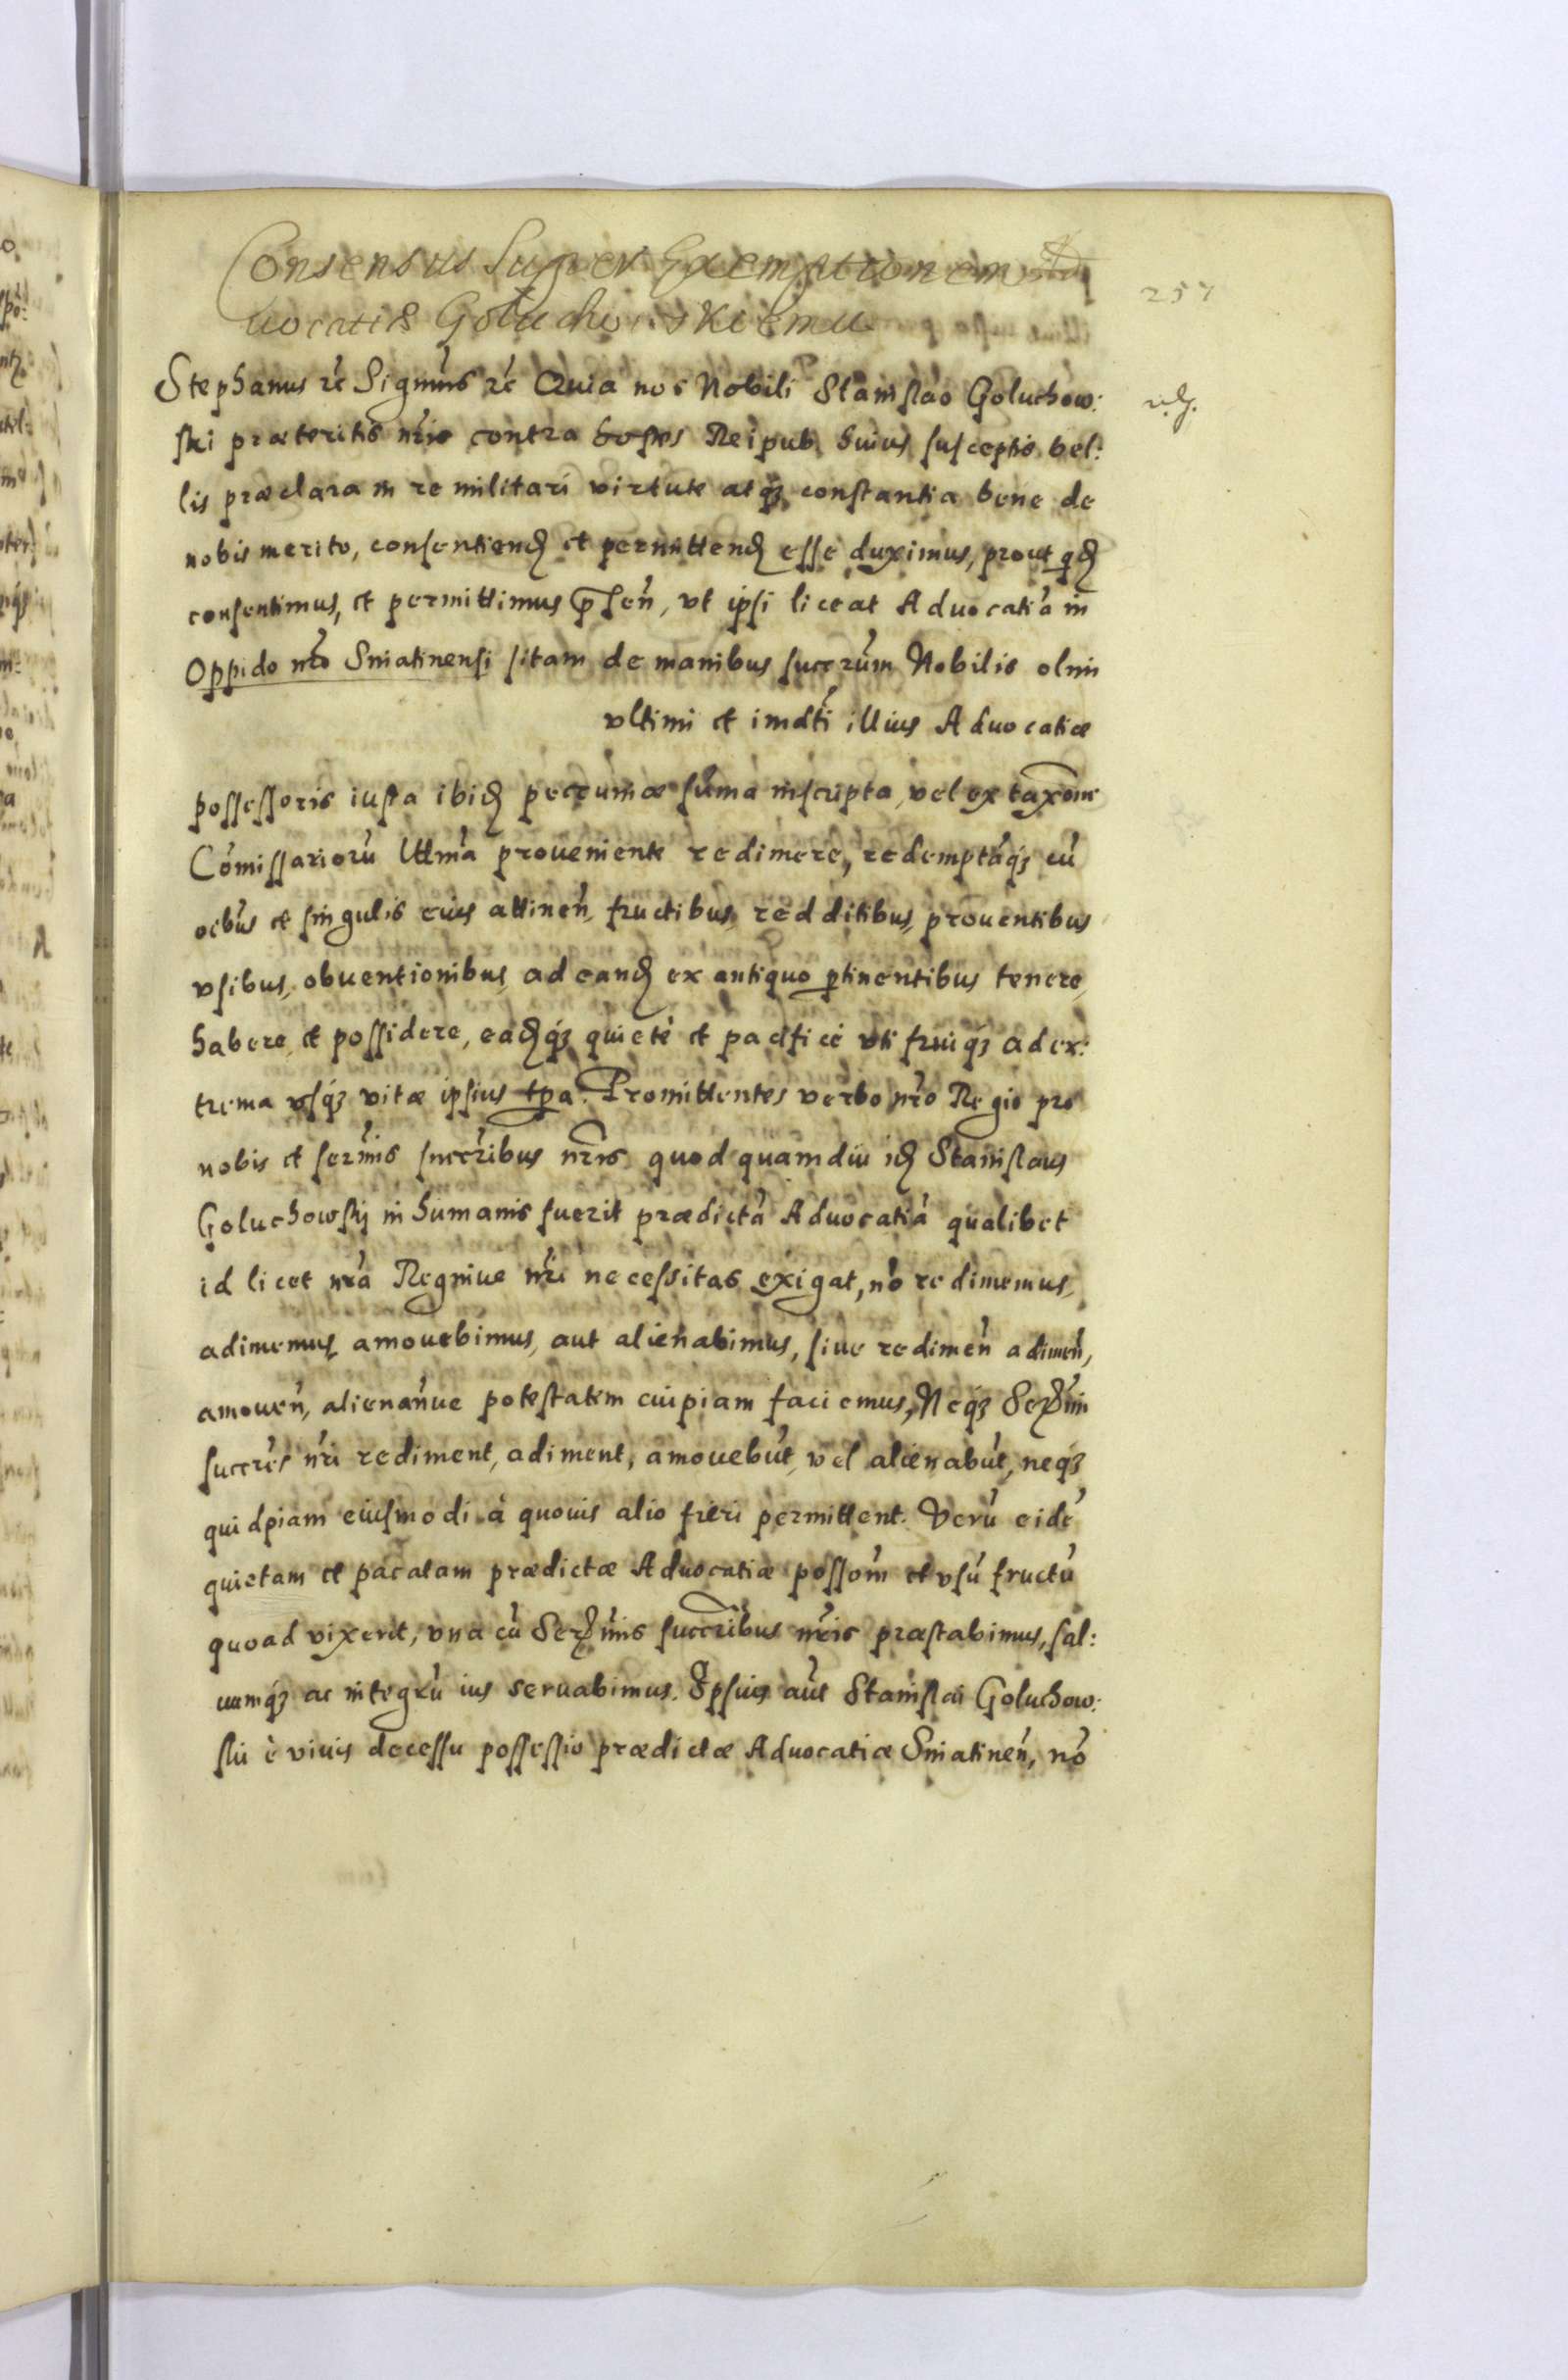 Consensus Super Exemptionem Ad
uocatiæ Goluchowskiemu
257
Stephanus etc̃ Signum̃s etc̃ Quia nos Nobili Stanislao Goluchow:
ski præteritis nr̃is contra hostes Reipub. huius susceptis bel:
lis præclara in re militari virtute atq3 constantia bene de
nobis merito, consentiend̃ et permittend̃ esse duximus, prout qd̃
consentimus, et permittimus p̃sen̄, vt ipsi liceat Aduocatiā in
Oppido nr̃o Sniatinensi sitam de manibus succr̃um Nobilis olim
vltimi et imdt̃i illius Aduocatiæ
possessoris iusta ibid̃ pecuniæ sum̄a inscripta, vel ex taxõne
Com̄issariorū Vtlm̃a proueniente redimere, redemptāq3 cū
oībus et singulis eius attinen̄, fructibus, redditibus, prouentibus
vsibus, obuentionibus, ad eand̃ ex antiquo ptinentibus tenere,
habere, et possidere, ead̃q3 quietè et pacificè vti fruiq3 ad ex:
trema vsq3 vitæ ipsius tpa. Promittentes verbo nr̃o Regio pro
nobis et serm̃is succr̃ibus nr̃is quod quamdiu id̃ Stanislaus
Goluchowskij in humanis fuerit prædictā Aduocatiā qualibet
id licet nr̃a Regniue nr̃i necessitas exigat, nō redimemus,
adimemus, amouebimus, aut alienabimus, siue redimen̄ adimen̄,
amouen̄, alienan̄ue potestatem cuipiam faciemus, Neq3 Serm̃i
succr̃es nr̃i rediment, adiment, amouebūt, vel alienabūt, neq3
quidpiam eiusmodi à quouis alio fieri permittent. Verū eidē
quietam et pacatam prædictæ Aduocatiæ possom̃ et vsū fructū
quoad vixerit, vna cū Serm̃is succr̃ibus nr̃is præstabimus, sal:
uumq3 ac integrū ius seruabimus. Ipsius aūt Stanislai Goluchow:
skii è viuis decessu possessio prædictæ Aduocatiæ Sniatinen̄, nō